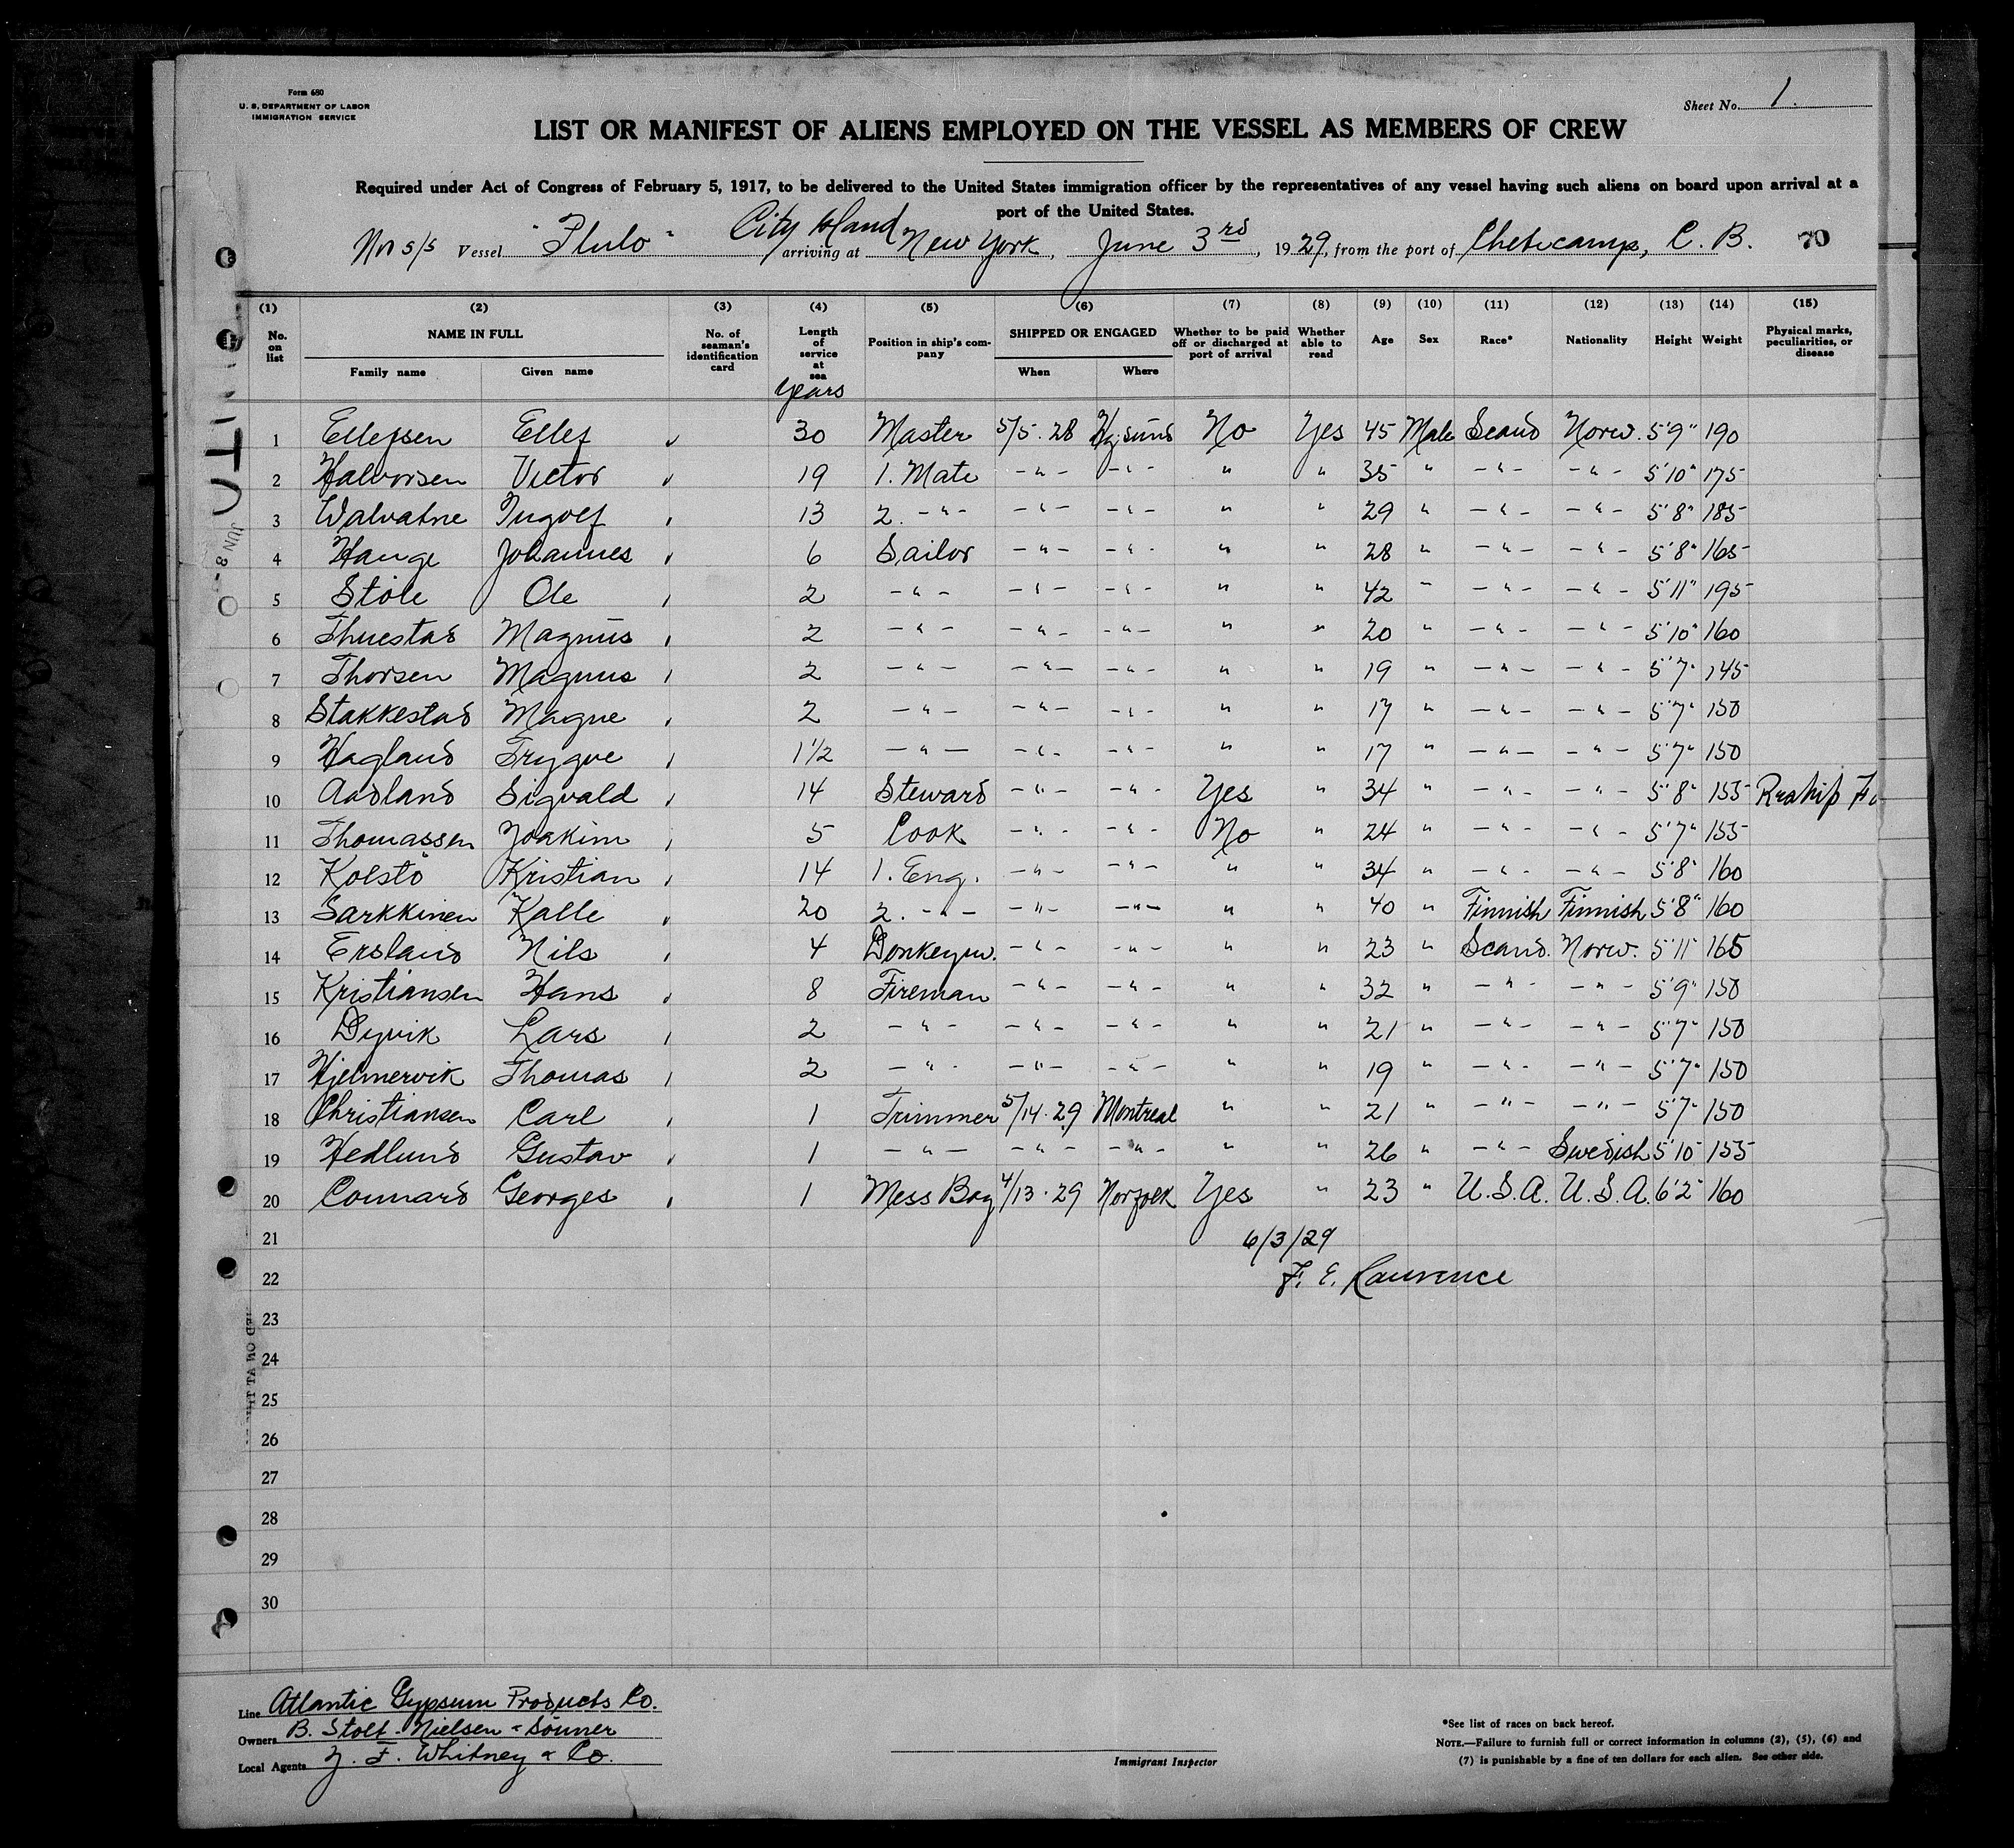 Form 680
U. S. DEPARTMENT OF LABOR
IMMIGRATION SERVICE
Sheet No. 1.
LIST OR MANIFEST OF ALIENS EMPLOYED ON THE VESSEL AS MEMBERS OF CREW
Required under Act of Congress of February 5, 1917, to be delivered to the United States immigration officer by the representatives of any vessel having such aliens on board upon arrival at a
port of the United States.
City Island
s/s Vessel arriving at New York, June 3rd, 1929, from the port of C. B. 70
(1) (2) (3) (4) (5) (6) (7) (8) (9) (10) (11) (12) (13) (14) (15)
No. on list NAME IN FULL No. of seaman's identification card Length of service at sea Position in ship's company SHIPPED OR ENGAGED Whether to be paid off or discharged at port of arrival Whether able to read Age Sex Race* Nationality Height Weight Physical marks, peculiarities, or disease
Family name Given name When Where
Years
1 Ellefsen Ellef 30 Master 5/5.28 No Yes 45 Male Scand Norw. 5'9" 190
2 Halvorsen Victor 19 1. Mate -"- -"- " " 35 " -"- -"- 5'10" 175
3 Walvatne Ingolf 13 2. -"- -"- -"- " " 29 " -"- -"- 5'8" 185
4 Hauge Johannes 6 Sailor -"- -"- " " 28 " -"- -"- 5'8" 165
5 Stöle Ole 2 -"- -"- -"- " " 42 " -"- -"- 5'11" 195
6 Thuestad Magnus 2 -"- -"- -"- " " 20 " -"- -"- 5'10" 160
7 Thorsen Magnus 2 -"- -"- -"- " " 19 " -"- -"- 5'7" 145
8 Stakkestad Magne 2 -"- -"- -"- " " 17 " -"- -"- 5'7" 150
9 Hagland Trygve 1 1/2 -"- -"- -"- " " 17 " -"- -"- 5'7" 150
10 Aadland Sigvald 14 Steward -"- -"- Yes " 34 " -"- -"- 5'8" 155
11 Thomassen Joakim 5 Cook -"- -"- No " 24 " -"- -"- 5'7" 155
12 Kolstö Kristian 14 1. Eng. -"- -"- " " 34 " -"- -"- 5'8" 160
13 Sarkkinen Kalle 20 2. -"- -"- -"- " " 40 " Finnish Finnish 5'8" 160
14 Ersland Nils 4 Donkeym. -"- -"- " " 23 " Scand. Norw. 5'11" 165
15 Kristiansen Hans 8 Fireman -"- -"- " " 32 " -"- -"- 5'9" 150
16 Dyvik Lars 2 -"- -"- -"- " " 21 " -"- -"- 5'7" 150
17 Hjelmervik Thomas 2 -"- -"- -"- " " 19 " -"- -"- 5'7" 150
18 Christiansen Carl 1 Trimmer 5/14.29 Montreal " " 21 " -"- -"- 5'7" 150
19 Hedlund Gustav 1 -"- -"- -"- " " 26 " -"- Swedish 5'10" 155
20 Connard Georges 1 Mess Boy 4/13.29 Norfolk Yes " 23 " U.S.A. U.S.A. 6'2" 160
21 6/3/29
22 F. E. Lawrence
23
24
25
26
27
28
29
30
Line Atlantic Gypsum Products Co.
Owners B. Stolt-Nielsen & Sønner
Local Agents J. F. Whitney & Co.
Immigrant Inspector
*See list of races on back hereof.
NOTE.—Failure to furnish full or correct information in columns (2), (5), (6) and
(7) is punishable by a fine of ten dollars for each alien. See other side.